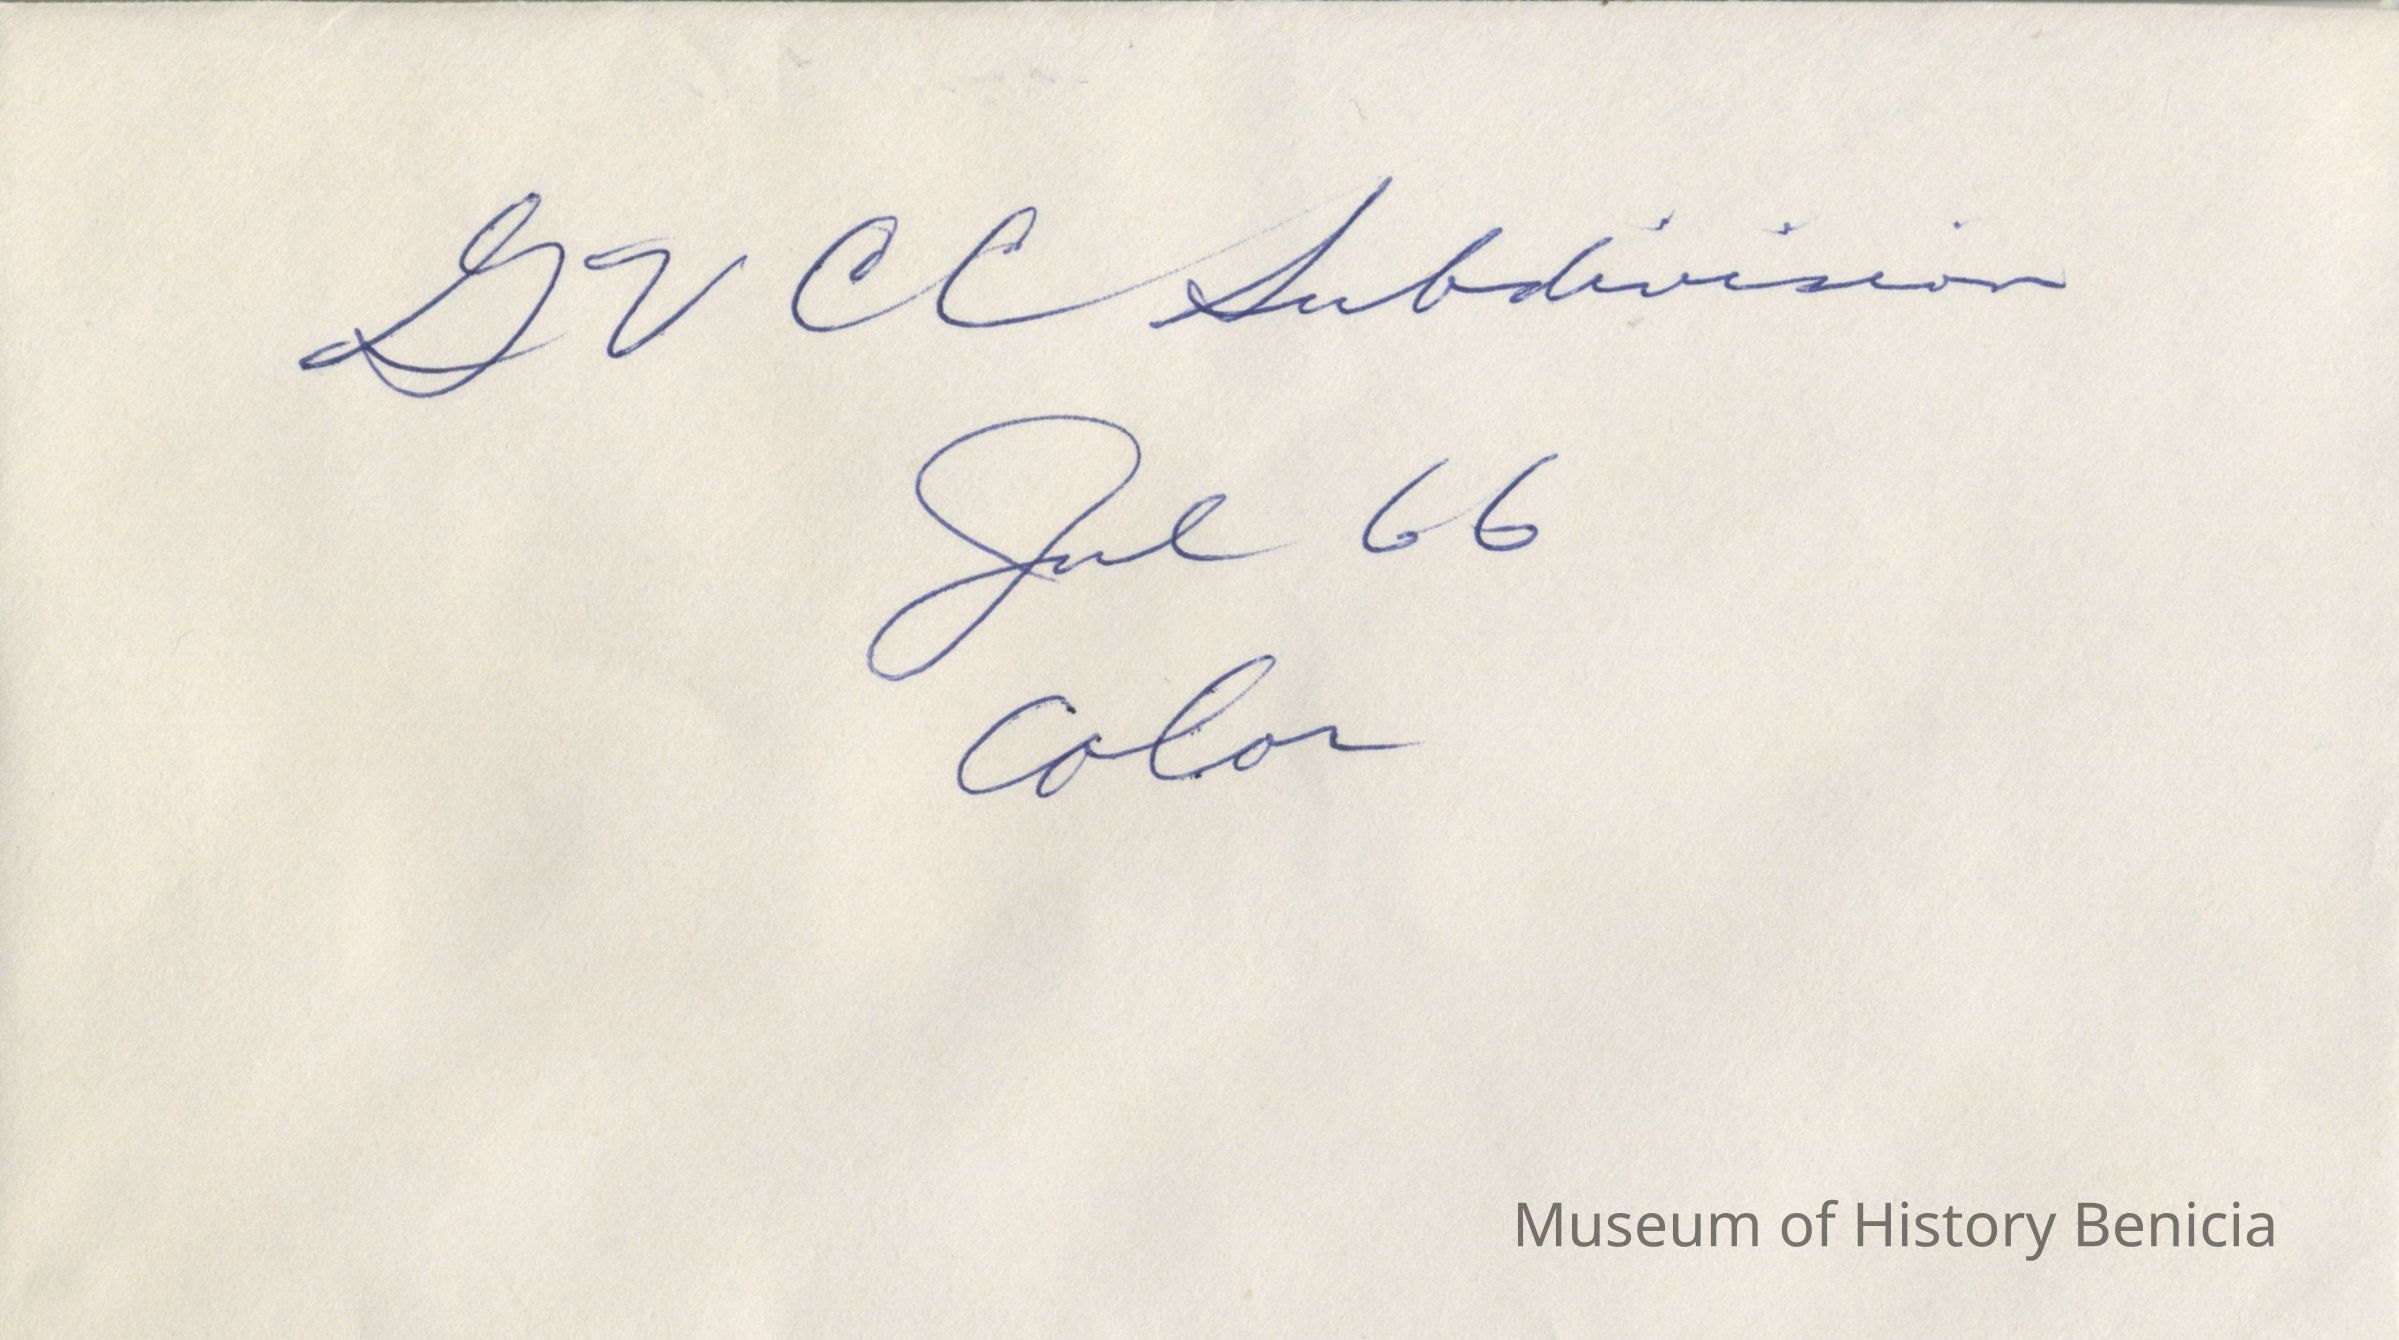 GV CC Subdivision
Jul 66
Color
Museum of History Benicia